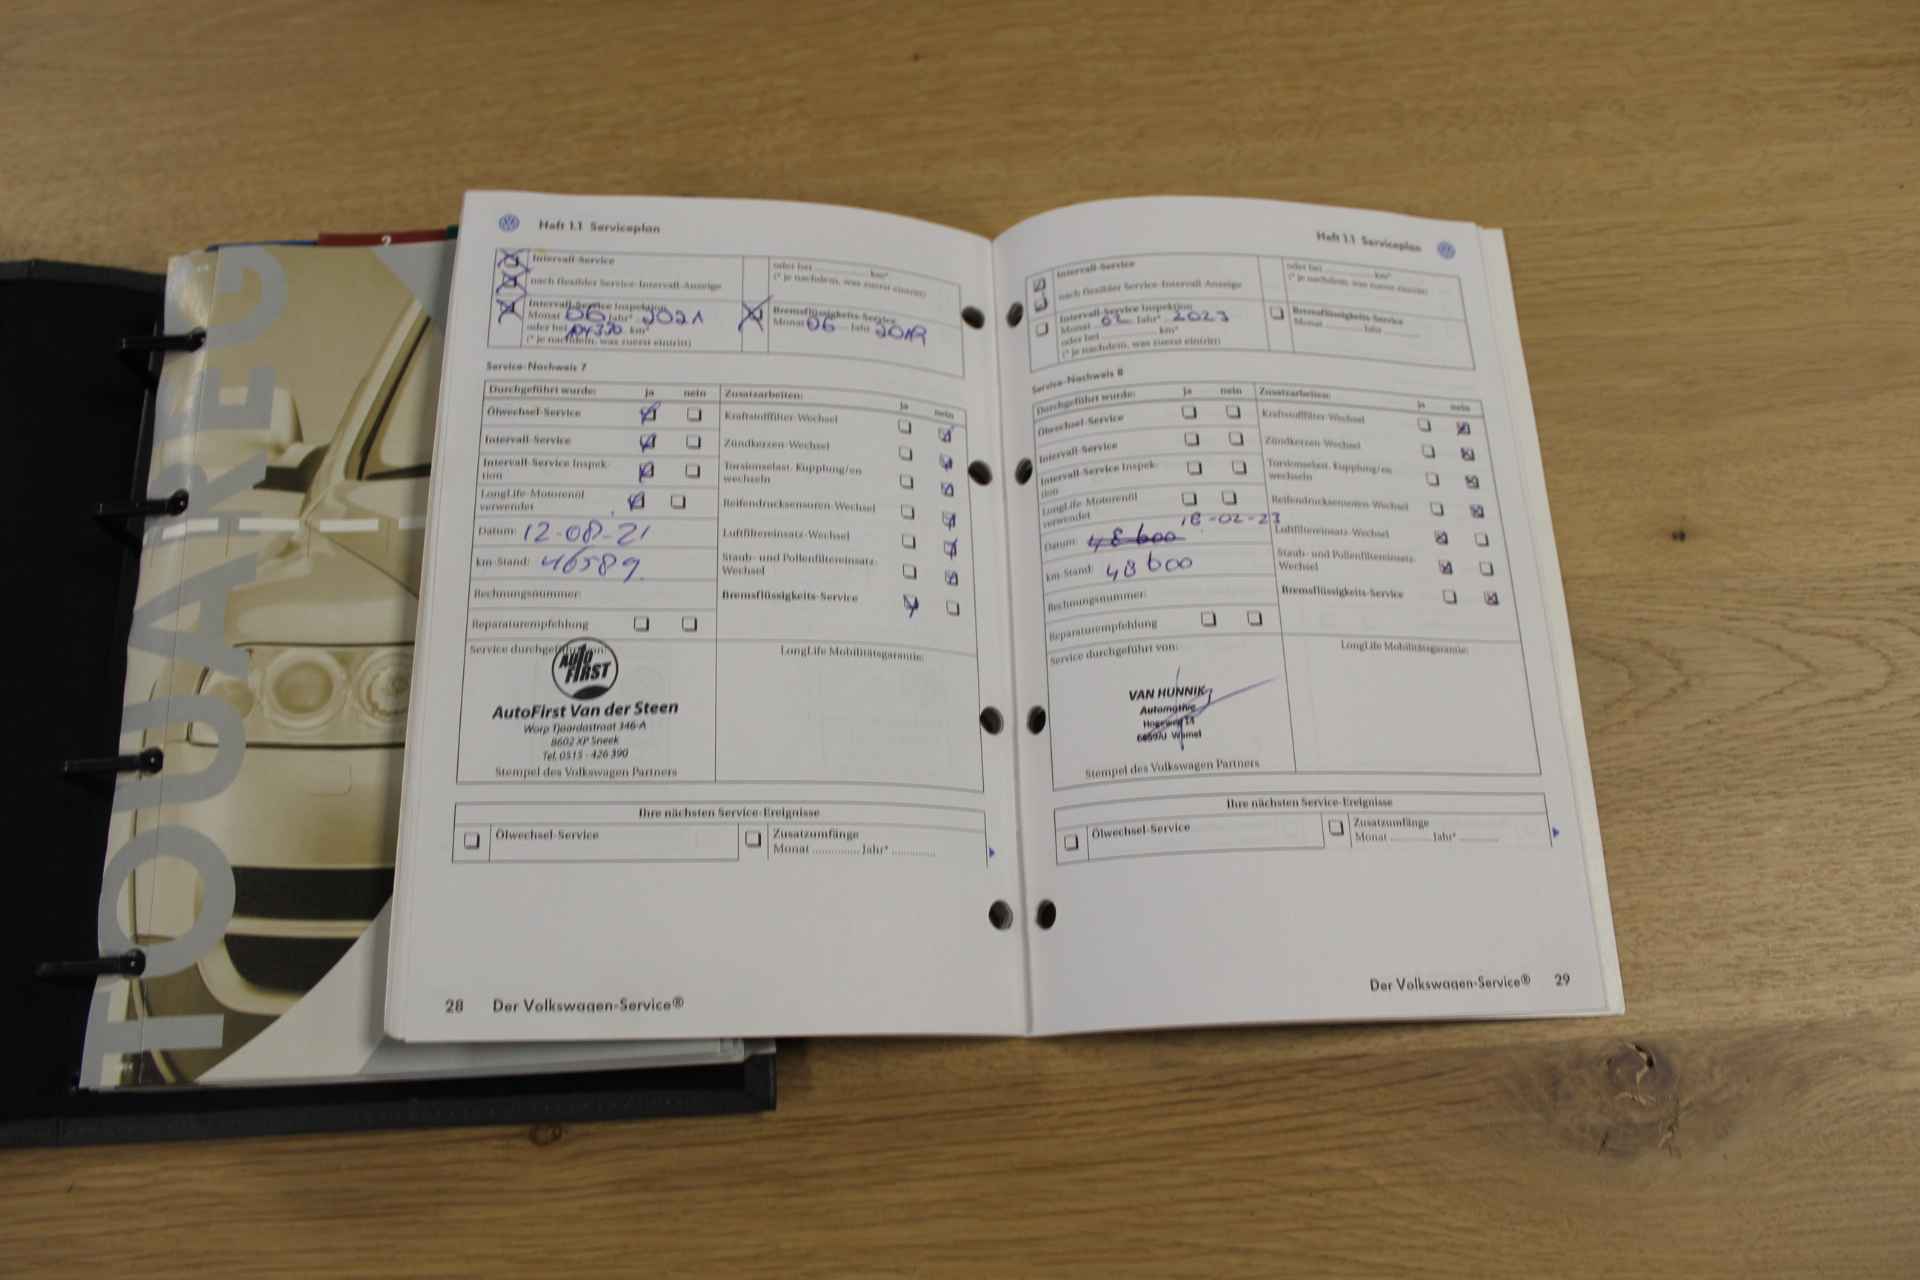 TOUAREG
2
Heft 1.1 Serviceplan
Intervall-Service
nach flexibler Service-Intervall-Anzeige
Intervall-Service Inspektion
Monat 06 Jahr* 2021
oder bei km*
(* je nachdem, was zuerst eintritt)
oder bei ............ km*
(* je nachdem, was zuerst eintritt)
Bremsflüssigkeits-Service
Monat 06 Jahr 2019
Service-Nachweis 7
Durchgeführt wurde: ja nein
Ölwechsel-Service
Intervall-Service
Intervall-Service Inspek-
tion
LongLife-Motorenöl
verwendet
Datum: 12-08-21
km-Stand: 46589
Rechnungsnummer:
Reparaturempfehlung
Zusatzarbeiten: ja nein
Kraftstofffilter-Wechsel
Zündkerzen-Wechsel
Torsionselast. Kupplung/en
wechseln
Reifendrucksensoren-Wechsel
Luftfiltereinsatz-Wechsel
Staub- und Pollenfiltereinsatz-
Wechsel
Bremsflüssigkeits-Service
Service durchgeführt von:
AUTO
FIRST
AutoFirst Van der Steen
Worp Tjaardastraat 346-A
8602 XP Sneek
Tel. 0515 - 426 390
Stempel des Volkswagen Partners
LongLife Mobilitätsgarantie:
Ihre nächsten Service-Ereignisse
Ölwechsel-Service
Zusatzumfänge
Monat .............. Jahr* .............
28 Der Volkswagen-Service®
Heft 1.1 Serviceplan
Intervall-Service
nach flexibler Service-Intervall-Anzeige
Intervall-Service Inspektion
Monat 02 Jahr* 2023
oder bei .................. km*
(* je nachdem, was zuerst eintritt)
oder bei ............ km*
(* je nachdem, was zuerst eintritt)
Bremsflüssigkeits-Service
Monat ............ Jahr ............
Service-Nachweis 8
Durchgeführt wurde: ja nein
Ölwechsel-Service
Intervall-Service
Intervall-Service Inspek-
tion
LongLife-Motorenöl
verwendet
18-02-23
Datum: 48600
km-Stand: 48600
Rechnungsnummer:
Reparaturempfehlung
Zusatzarbeiten: ja nein
Kraftstofffilter-Wechsel
Zündkerzen-Wechsel
Torsionselast. Kupplung/en
wechseln
Reifendrucksensoren-Wechsel
Luftfiltereinsatz-Wechsel
Staub- und Pollenfiltereinsatz-
Wechsel
Bremsflüssigkeits-Service
Service durchgeführt von:
VAN HUNNIK
Automotive
Hogeweg 14
Wamel
Stempel des Volkswagen Partners
LongLife Mobilitätsgarantie:
Ihre nächsten Service-Ereignisse
Ölwechsel-Service
Zusatzumfänge
Monat ............ Jahr* ............
Der Volkswagen-Service® 29